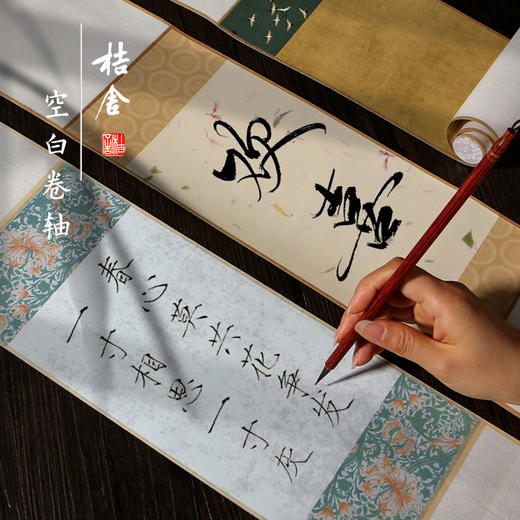 桔舍
空白卷轴
喜
春心莫共花争发
一寸相思一寸灰